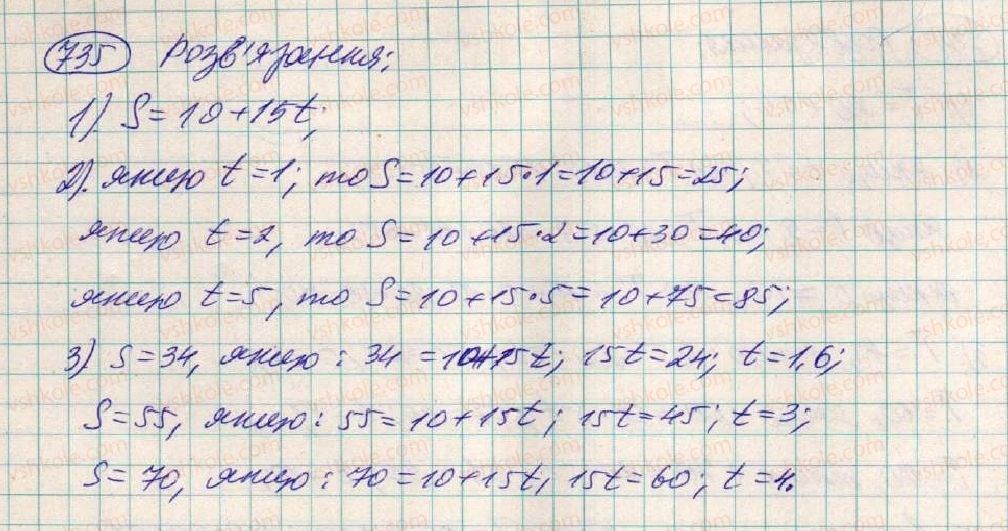 735 Розв'язання:
1) S = 10 + 15t;
2). якщо t = 1; то S = 10 + 15 · 1 = 10 + 15 = 25;
якщо t = 2, то S = 10 + 15 · 2 = 10 + 30 = 40;
якщо t = 5, то S = 10 + 15 · 5 = 10 + 75 = 85;
3) S = 34, якщо : 34 = 10 + 15t; 15t = 24; t = 1,6;
S = 55, якщо : 55 = 10 + 15t; 15t = 45; t = 3;
S = 70, якщо : 70 = 10 + 15t, 15t = 60; t = 4.